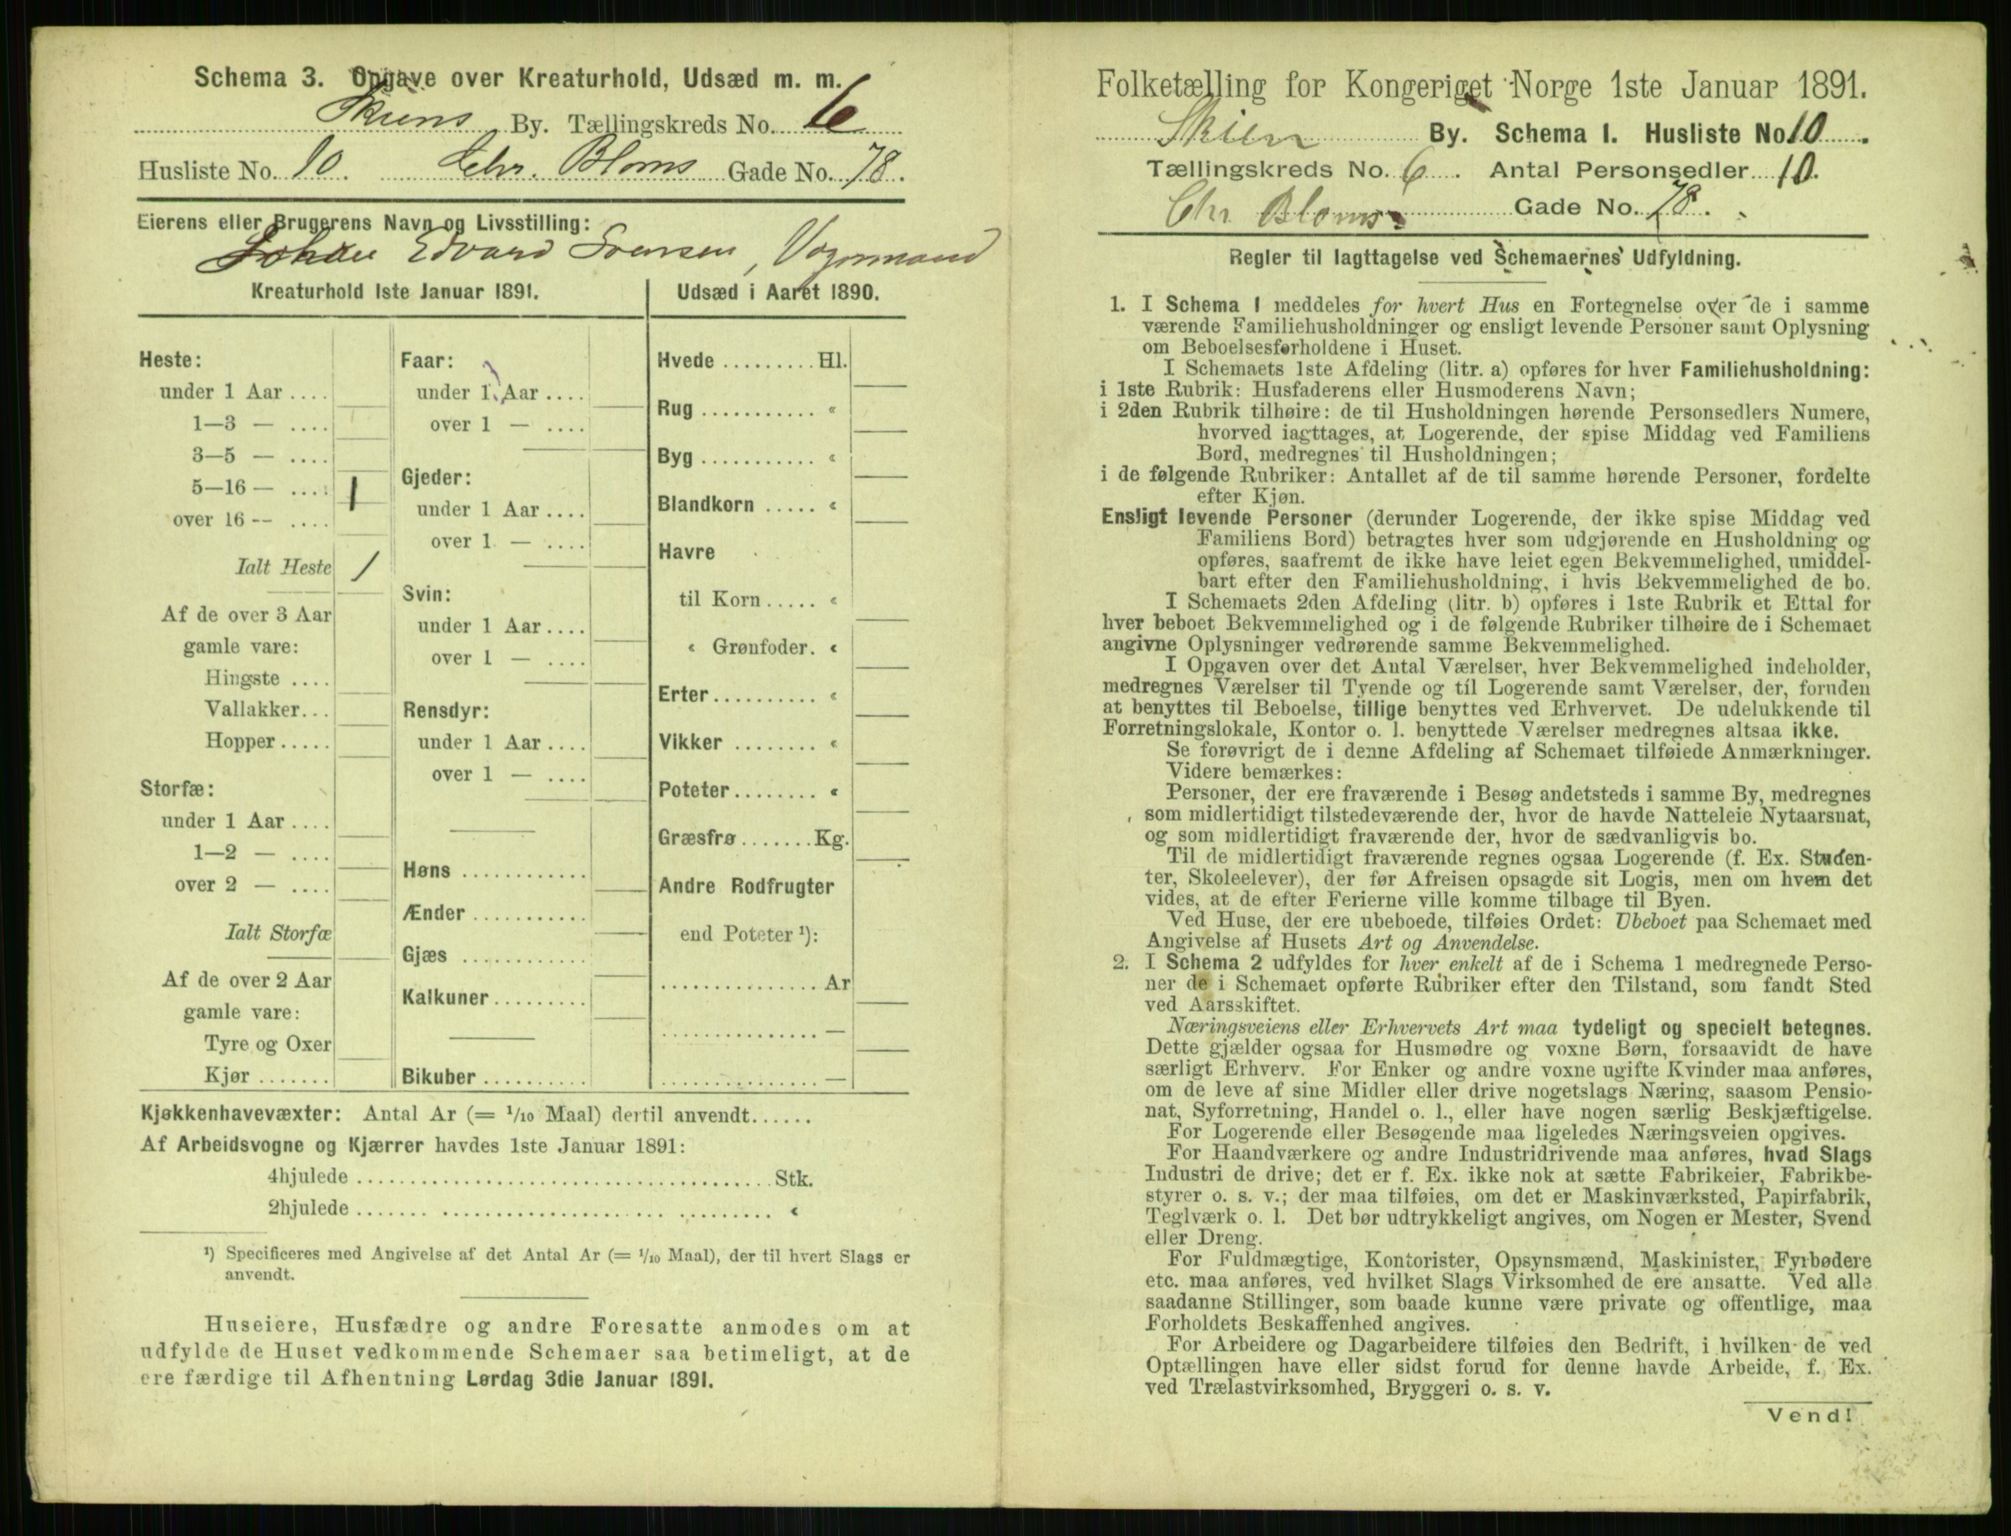 Schema 3. Opgave over Kreaturhold, Udsæd m. m.
Skiens By. Tællingskreds No. 6
Husliste No. 10. Chr. Bloms Gade No. 78.
Eierens eller Brugerens Navn og Livsstilling:
Johan Edvard Svensen, Vognmand
Kreaturhold 1ste Januar 1891.
Heste:
under 1 Aar ....
1—3 — ....
3—5 — ....
5—16 — .... 1
over 16 -- ....
Ialt Heste 1
Af de over 3 Aar
gamle vare:
Hingste ....
Vallakker...
Hopper.....
Storfæ:
under 1 Aar ....
1—2 — ....
over 2 — ....
Ialt Storfæ
Af de over 2 Aar
gamle vare:
Tyre og Oxer
Kjør .......
Faar:
under 1 Aar ....
over 1 — ....
Gjeder:
under 1 Aar ....
over 1 — ....
Svin:
under 1 Aar ....
over 1 — ....
Rensdyr:
under 1 Aar ....
over 1 — ....
Høns ............
Ænder ...........
Gjæs ............
Kalkuner.........
Bikuber ..........
Udsæd i Aaret 1890.
Hvede ......... Hl.
Rug ........... «
Byg ........... «
Blandkorn ..... «
Havre
til Korn ..... «
« Grønfoder. «
Erter.......... «
Vikker ........ «
Poteter........ «
Græsfrø .......Kg.
Andre Rodfrugter
end Poteter ¹):
............... Ar
............... —
............... —
Kjøkkenhavevæxter: Antal Ar (= 1/10 Maal) dertil anvendt......
Af Arbeidsvogne og Kjærrer havdes 1ste Januar 1891:
4hjulede ....................................... Stk.
2hjulede ....................................... «
¹) Specificeres med Angivelse af det Antal Ar (= 1/10 Maal), der til hvert Slags er
anvendt.
Huseiere, Husfædre og andre Foresatte anmodes om at
udfylde de Huset vedkommende Schemaer saa betimeligt, at de
ere færdige til Afhentning Lørdag 3die Januar 1891.
Folketælling for Kongeriget Norge 1ste Januar 1891.
Skien By. Schema 1. Husliste No 10.
Tællingskreds No. 6. Antal Personsedler 10.
Chr Bloms Gade No. 78.
Regler til Iagttagelse ved Schemaernes Udfyldning.
1. I Schema 1 meddeles for hvert Hus en Fortegnelse over de i samme
værende Familiehusholdninger og ensligt levende Personer samt Oplysning
om Beboelsesforholdene i Huset.
I Schemaets 1ste Afdeling (litr. a) opføres for hver Familiehusholdning:
i 1ste Rubrik: Husfaderens eller Husmoderens Navn;
i 2den Rubrik tilhøire: de til Husholdningen hørende Personsedlers Numere,
hvorved iagttages, at Logerende, der spise Middag ved Familiens
Bord, medregnes til Husholdningen;
i de følgende Rubriker: Antallet af de til samme hørende Personer, fordelte
efter Kjøn.
Ensligt levende Personer (derunder Logerende, der ikke spise Middag ved
Familiens Bord) betragtes hver som udgjørende en Husholdning og
opføres, saafremt de ikke have leiet egen Bekvemmelighed, umiddel-
bart efter den Familiehusholdning, i hvis Bekvemmelighed de bo.
I Schemaets 2den Afdeling (litr. b) opføres i 1ste Rubrik et Ettal for
hver beboet Bekvemmelighed og i de følgende Rubriker tilhøire de i Schemaet
angivne Oplysninger vedrørende samme Bekvemmelighed.
I Opgaven over det Antal Værelser, hver Bekvemmelighed indeholder,
medregnes Værelser til Tyende og til Logerende samt Værelser, der, foruden
at benyttes til Beboelse, tillige benyttes ved Erhvervet. De udelukkende til
Forretningslokale, Kontor o. l. benyttede Værelser medregnes altsaa ikke.
Se forøvrigt de i denne Afdeling af Schemaet tilføiede Anmærkninger.
Videre bemærkes:
Personer, der ere fraværende i Besøg andetsteds i samme By, medregnes
som midlertidigt tilstedeværende der, hvor de havde Natteleie Nytaarsnat,
og som midlertidigt fraværende der, hvor de sædvanligvis bo.
Til de midlertidigt fraværende regnes ogsaa Logerende (f. Ex. Studen-
ter, Skoleelever), der før Afreisen opsagde sit Logis, men om hvem det
vides, at de efter Ferierne ville komme tilbage til Byen.
Ved Huse, der ere ubeboede, tilføies Ordet: Ubeboet paa Schemaet med
Angivelse af Husets Art og Anvendelse.
2. I Schema 2 udfyldes for hver enkelt af de i Schema 1 medregnede Perso-
ner de i Schemaet opførte Rubriker efter den Tilstand, som fandt Sted
ved Aarsskiftet.
Næringsveiens eller Erhvervets Art maa tydeligt og specielt betegnes.
Dette gjælder ogsaa for Husmødre og voxne Børn, forsaavidt de have
særligt Erhverv. For Enker og andre voxne ugifte Kvinder maa anføres,
om de leve af sine Midler eller drive nogetslags Næring, saasom Pensio-
nat, Syforretning, Handel o. l., eller have nogen særlig Beskjæftigelse.
For Logerende eller Besøgende maa ligeledes Næringsveien opgives.
For Haandværkere og andre Industridrivende maa anføres, hvad Slags
Industri de drive; det er f. Ex. ikke nok at sætte Fabrikeier, Fabrikbe-
styrer o. s. v.; der maa tilføies, om det er Maskinværksted, Papirfabrik,
Teglværk o. l. Det bør udtrykkeligt angives, om Nogen er Mester, Svend
eller Dreng.
For Fuldmægtige, Kontorister, Opsynsmænd, Maskinister, Fyrbødere
etc. maa anføres, ved hvilket Slags Virksomhed de ere ansatte. Ved alle
saadanne Stillinger, som baade kunne være private og offentlige, maa
Forholdets Beskaffenhed angives.
For Arbeidere og Dagarbeidere tilføies den Bedrift, i hvilken de ved
Optællingen have eller sidst forud for denne havde Arbeide, f. Ex.
ved Trælastvirksomhed, Bryggeri o. s. v.
Vend!